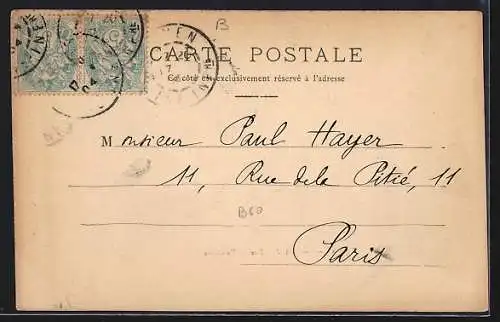 B
CARTE POSTALE
Ce côté est exclusivement réservé à l'adresse
Monsieur Paul Hayer
11, Rue de la Pitié, 11
B60
Paris